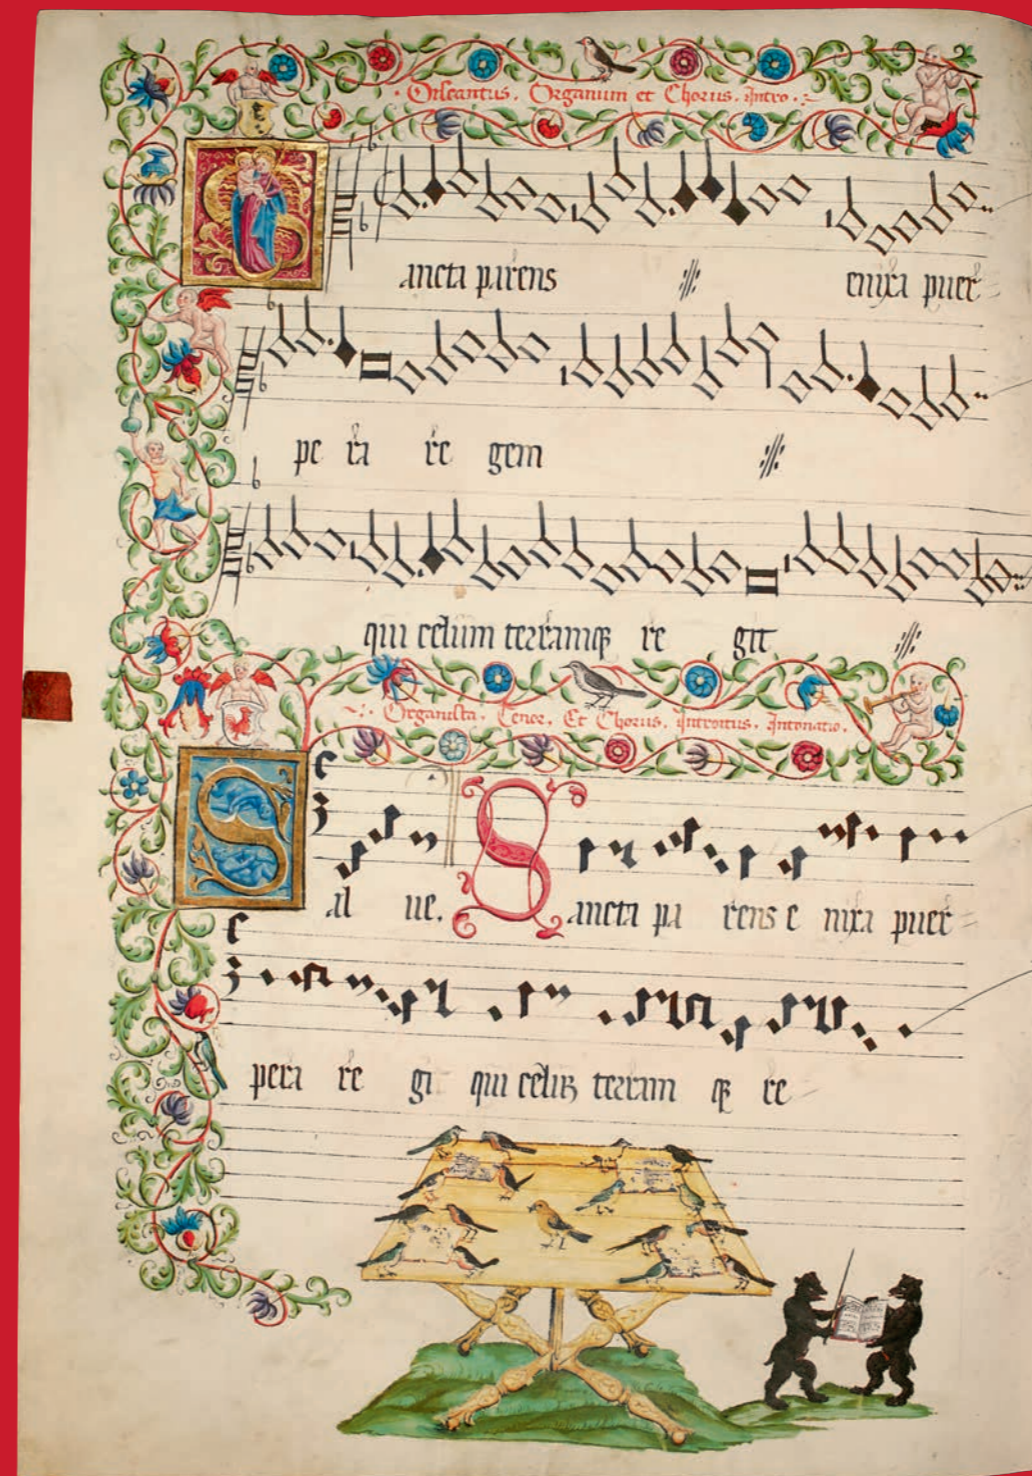 Orleantus. Organum et Chorus. Intro.
Sancta parens enixa puer
pe ra re gem
qui celum terramq re git
Organista. Tenor. Et Chorus. Introitus. Intonatio.
Sal ue. Sancta pa rens e nixa puer
pera re gi qui celu terram q re